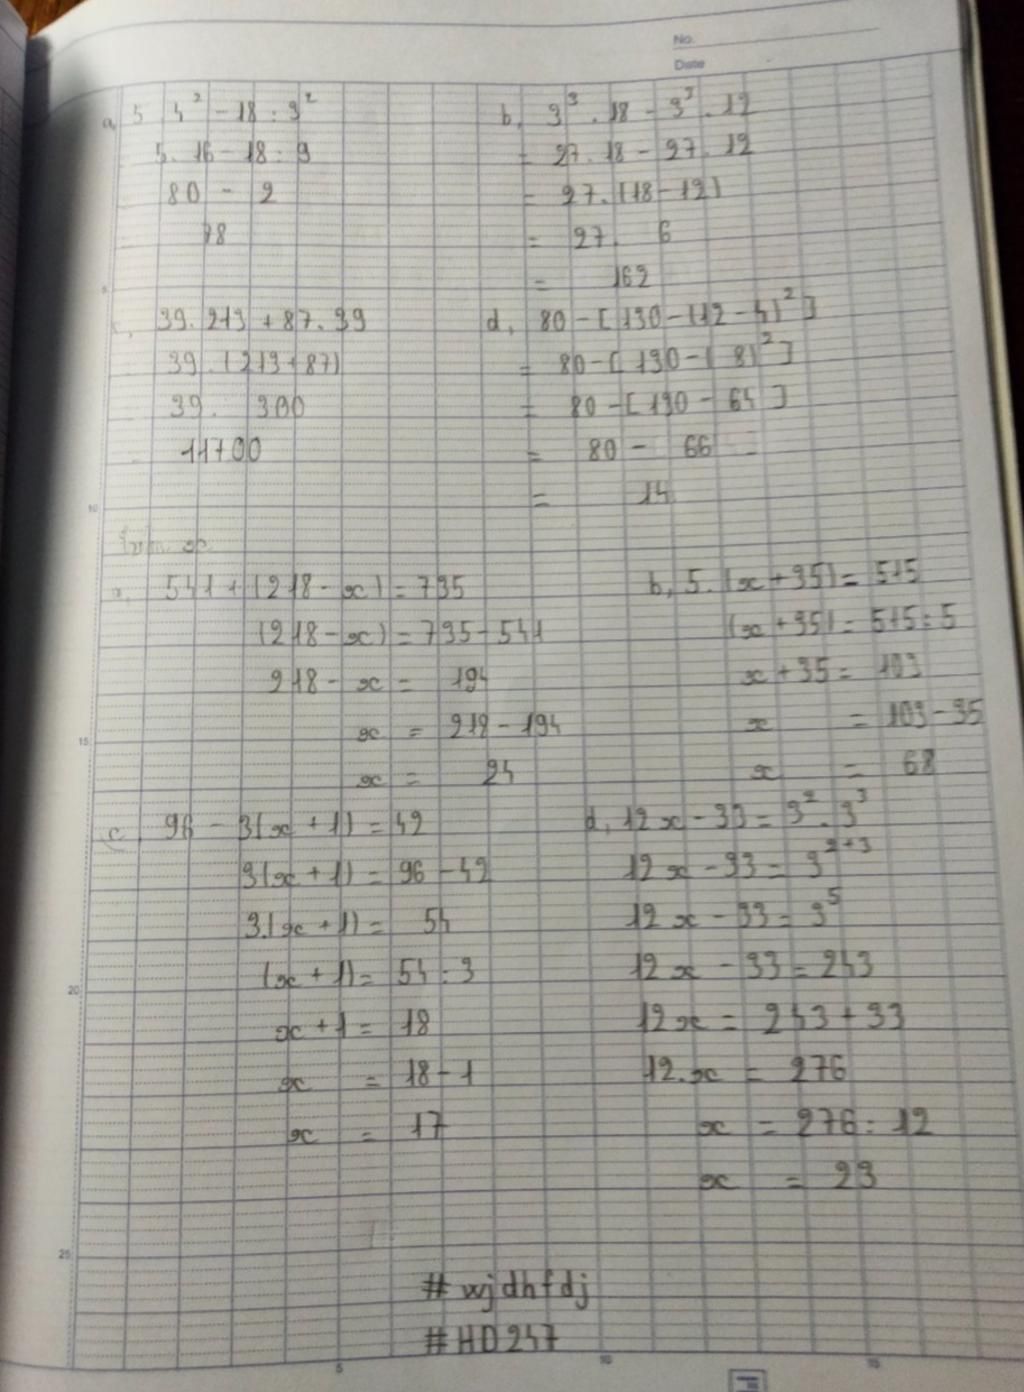 No.
Date
a, 5 4² - 18 : 3²
5. 16 - 18 : 9
80 - 2
78
b, 3³ . 18 - 3³ . 12
= 27. 18 - 27. 12
= 27. (18 - 12)
= 27. 6
= 162
c, 39. 213 + 87. 39
39 . (213 + 87)
39. 300
11700
d, 80 - [130 - (12 - 4)²]
= 80 - [130 - (8)²]
= 80 - [130 - 64]
= 80 - 66
= 14
a, 541 + (218 - x) = 735
(218 - x) = 735 - 541
218 - x = 194
x = 218 - 194
x = 24
b, 5. (x + 35) = 515
(x + 35) = 515 : 5
x + 35 = 103
x = 103 - 35
x = 68
c 96 - 3(x + 1) = 42
3(x + 1) = 96 - 42
3.(x + 1) = 54
(x + 1) = 54 : 3
x + 1 = 18
x = 18 - 1
x = 17
d, 12x - 33 = 3² . 3³
12x - 33 = 3²⁺³
12x - 33 = 3⁵
12x - 33 = 243
12x = 243 + 33
12.x = 276
x = 276 : 12
x = 23
# wjdhfdj
# HD247
5
10
15
20
25
5
10
15